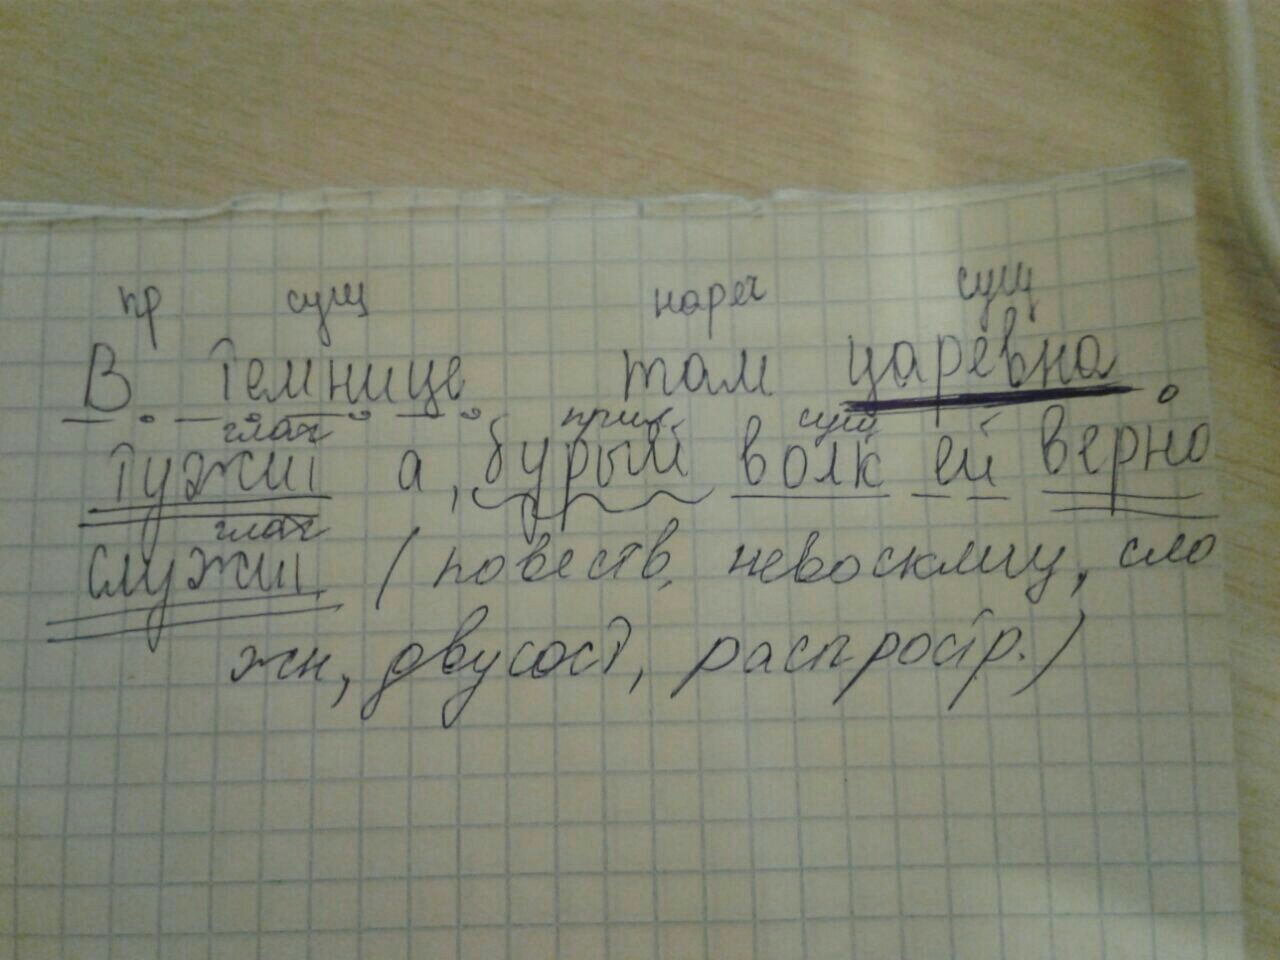 пр сущ нареч сущ
В темнице там царевна.
глаг прил сущ
Тужит а, бурый волк ей верно
глаг
служит. (повеств, невосклиц, сло
жн, двусост, распростр.)